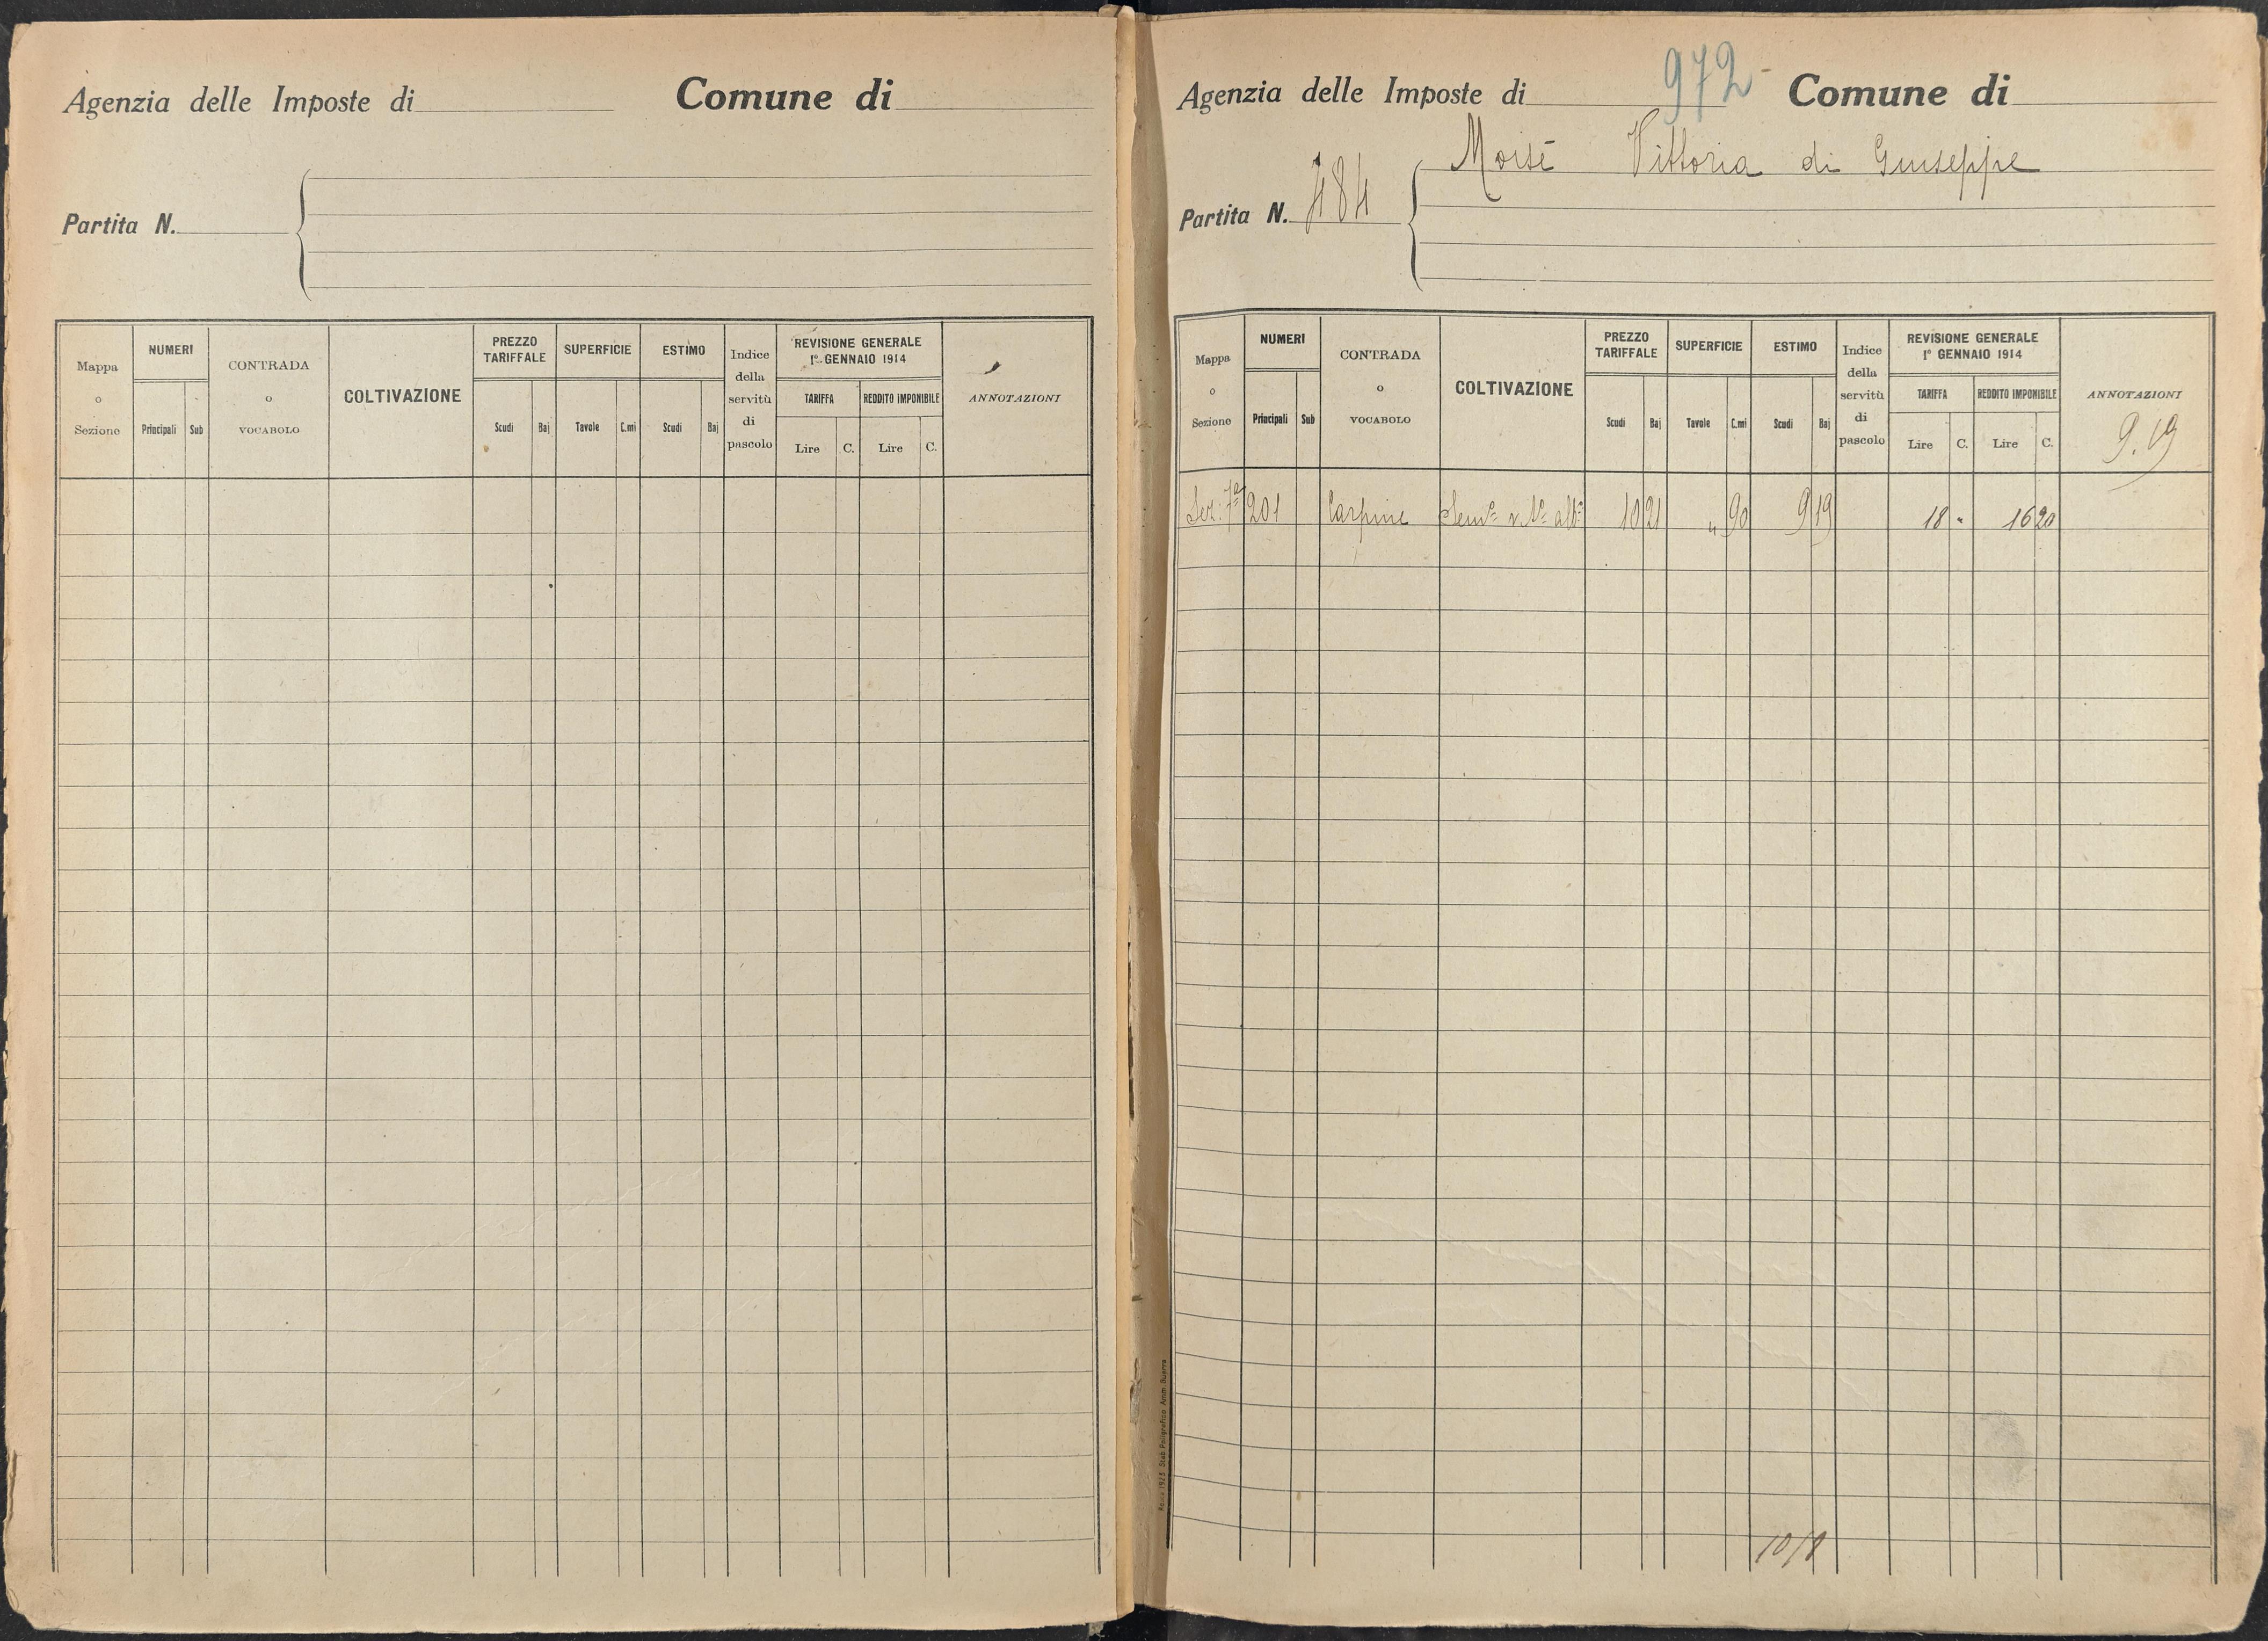 Agenzia delle Imposte di Comune di
Partita N.
Mappa o Sezione
NUMERI
Principali Sub
CONTRADA o VOCABOLO
COLTIVAZIONE
PREZZO TARIFFALE
Scudi Baj
SUPERFICIE
Tavole C.mi
ESTIMO
Scudi Baj
Indice della servitù di pascolo
REVISIONE GENERALE
1° GENNAIO 1914
TARIFFA REDDITO IMPONIBILE
Lire C. Lire C.
ANNOTAZIONI
972
Agenzia delle Imposte di Comune di
Moisé Vittoria di Giuseppe
Partita N. 484
Mappa o Sezione
NUMERI
Principali Sub
CONTRADA o VOCABOLO
COLTIVAZIONE
PREZZO TARIFFALE
Scudi Baj
SUPERFICIE
Tavole C.mi
ESTIMO
Scudi Baj
Indice della servitù di pascolo
REVISIONE GENERALE
1° GENNAIO 1914
TARIFFA REDDITO IMPONIBILE
Lire C. Lire C.
ANNOTAZIONI
9.19
Sez. 7ª 201 Carpine Semvº alb 10 21 " 90 9 19 18 " 16 20